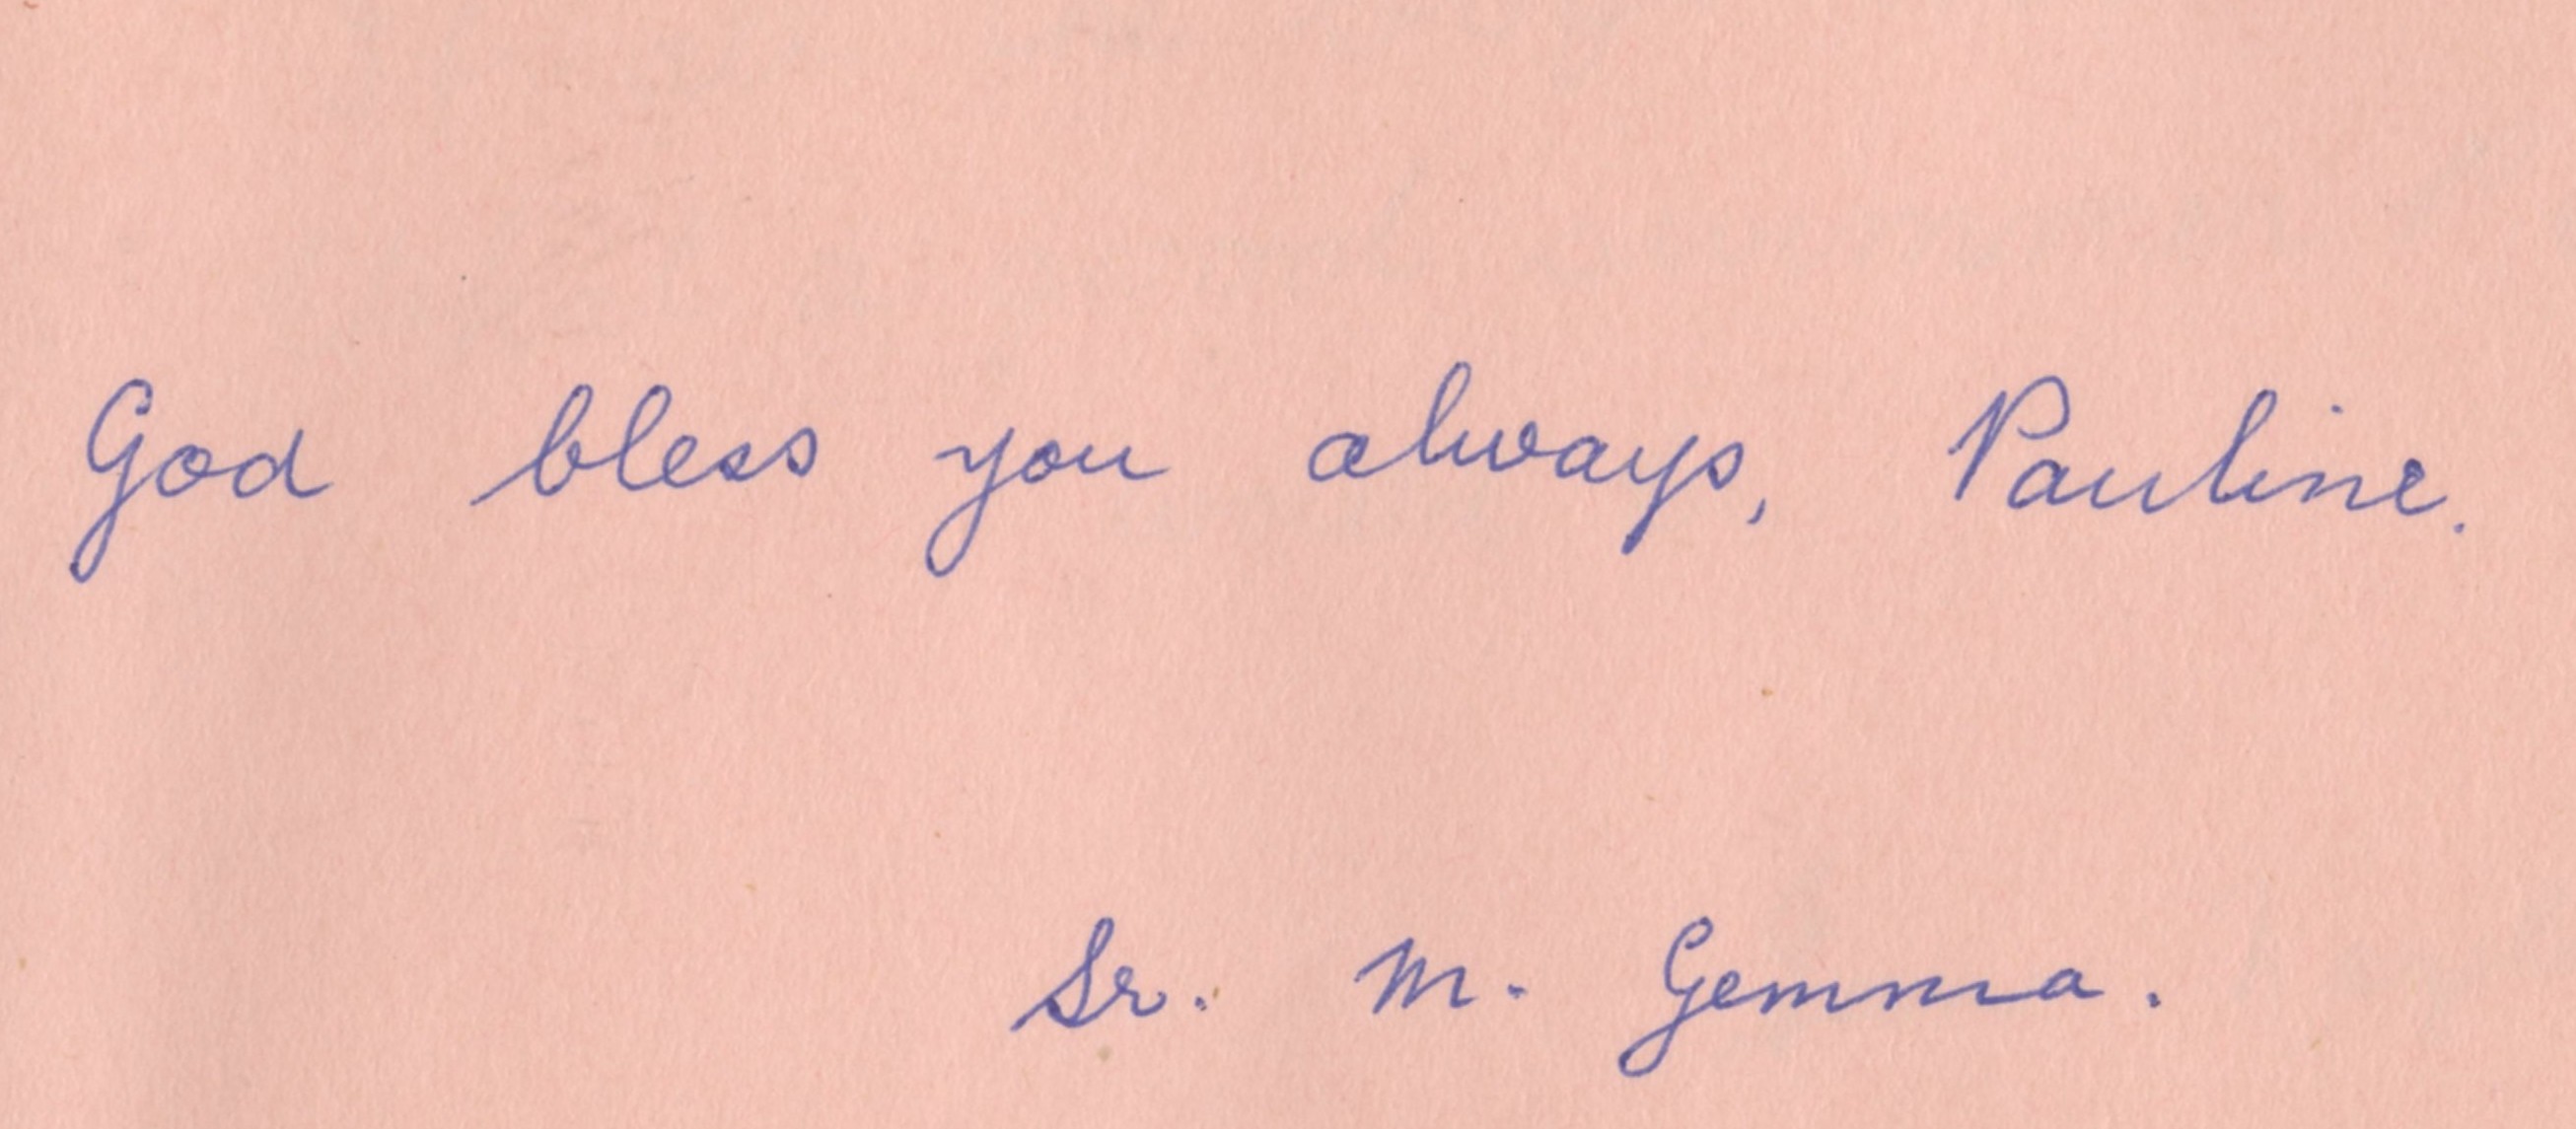 God bless you always, Pauline.
Sr. M. Gemma.